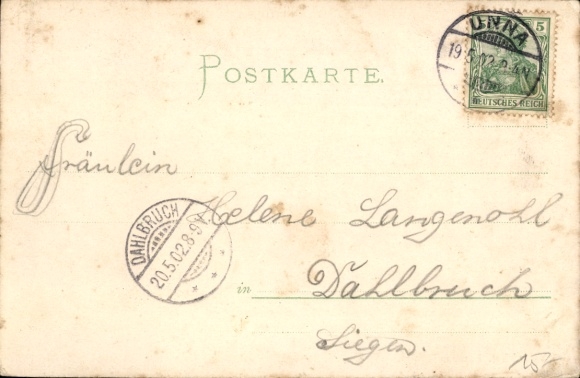 UNNA
19.5.02.
5
DEUTSCHES REICH
POSTKARTE.
Fräulein
Helene Langenohl
DAHLBRUCH
20.5.02.8-9V.
in Dahlbruch
Siegen.
15